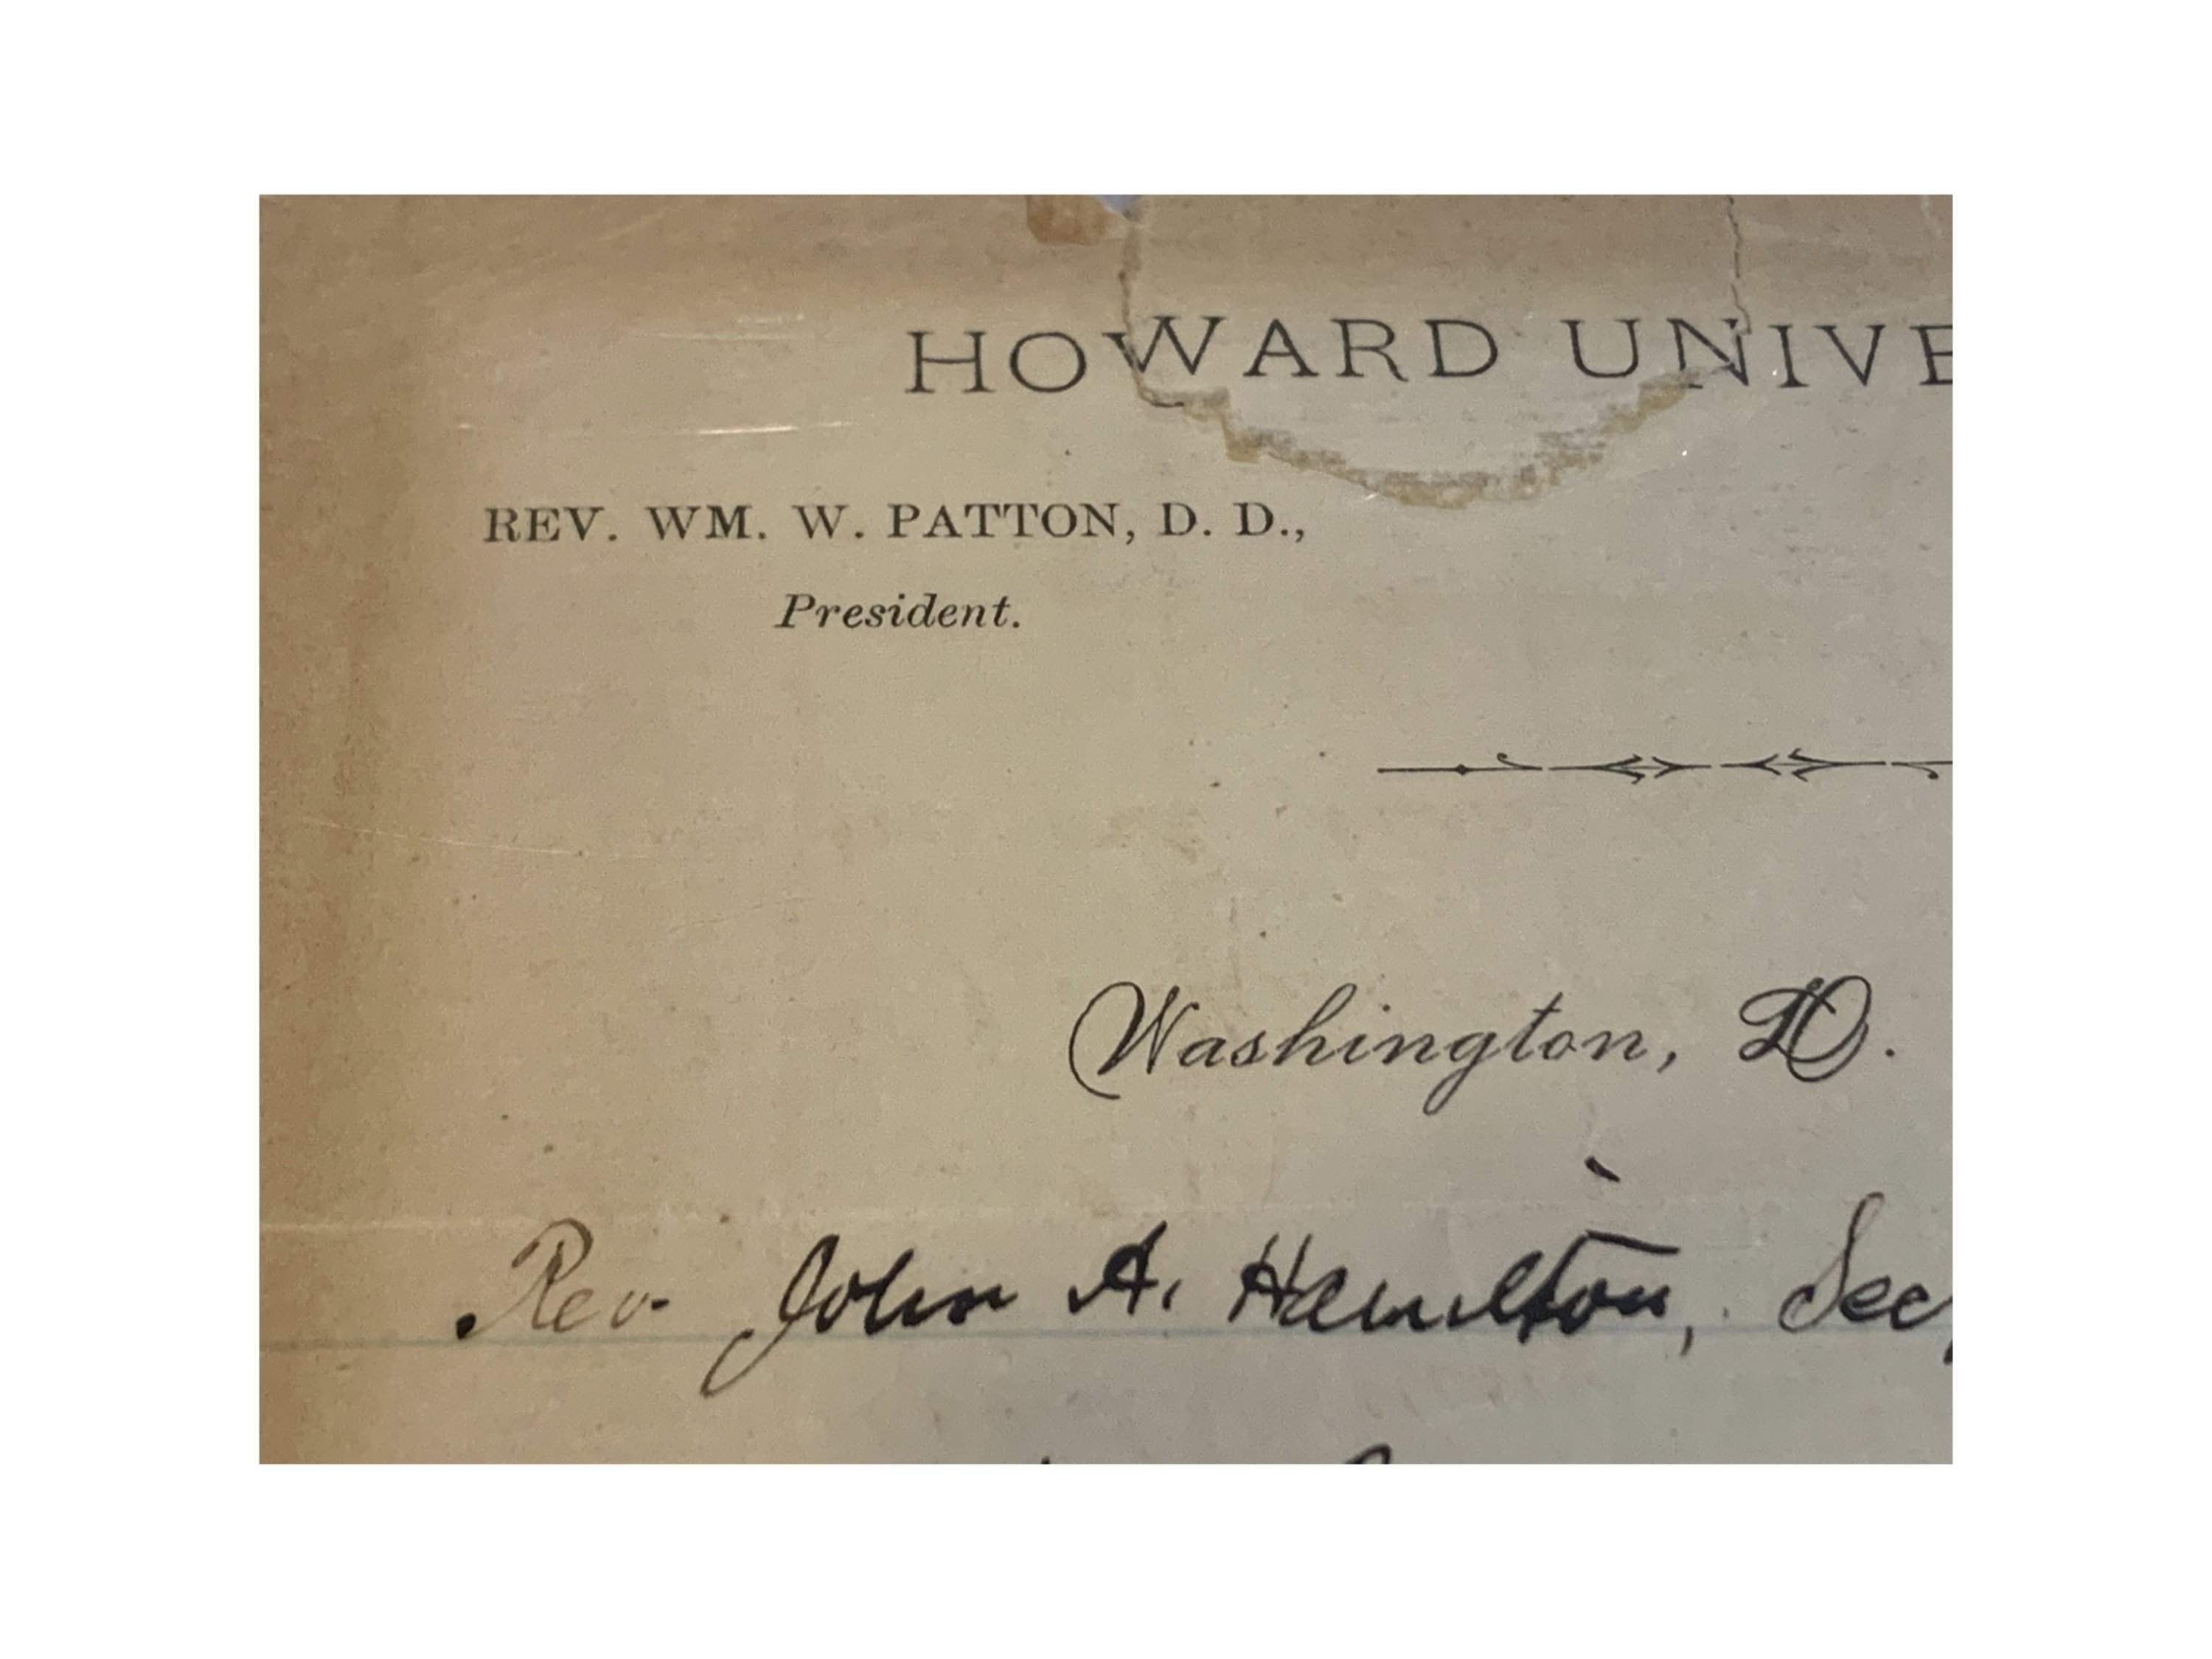 HOWARD UNIVE
REV. WM. W. PATTON, D. D.,
President.
Washington, D.
Rev. John A. Hamilton, Sec